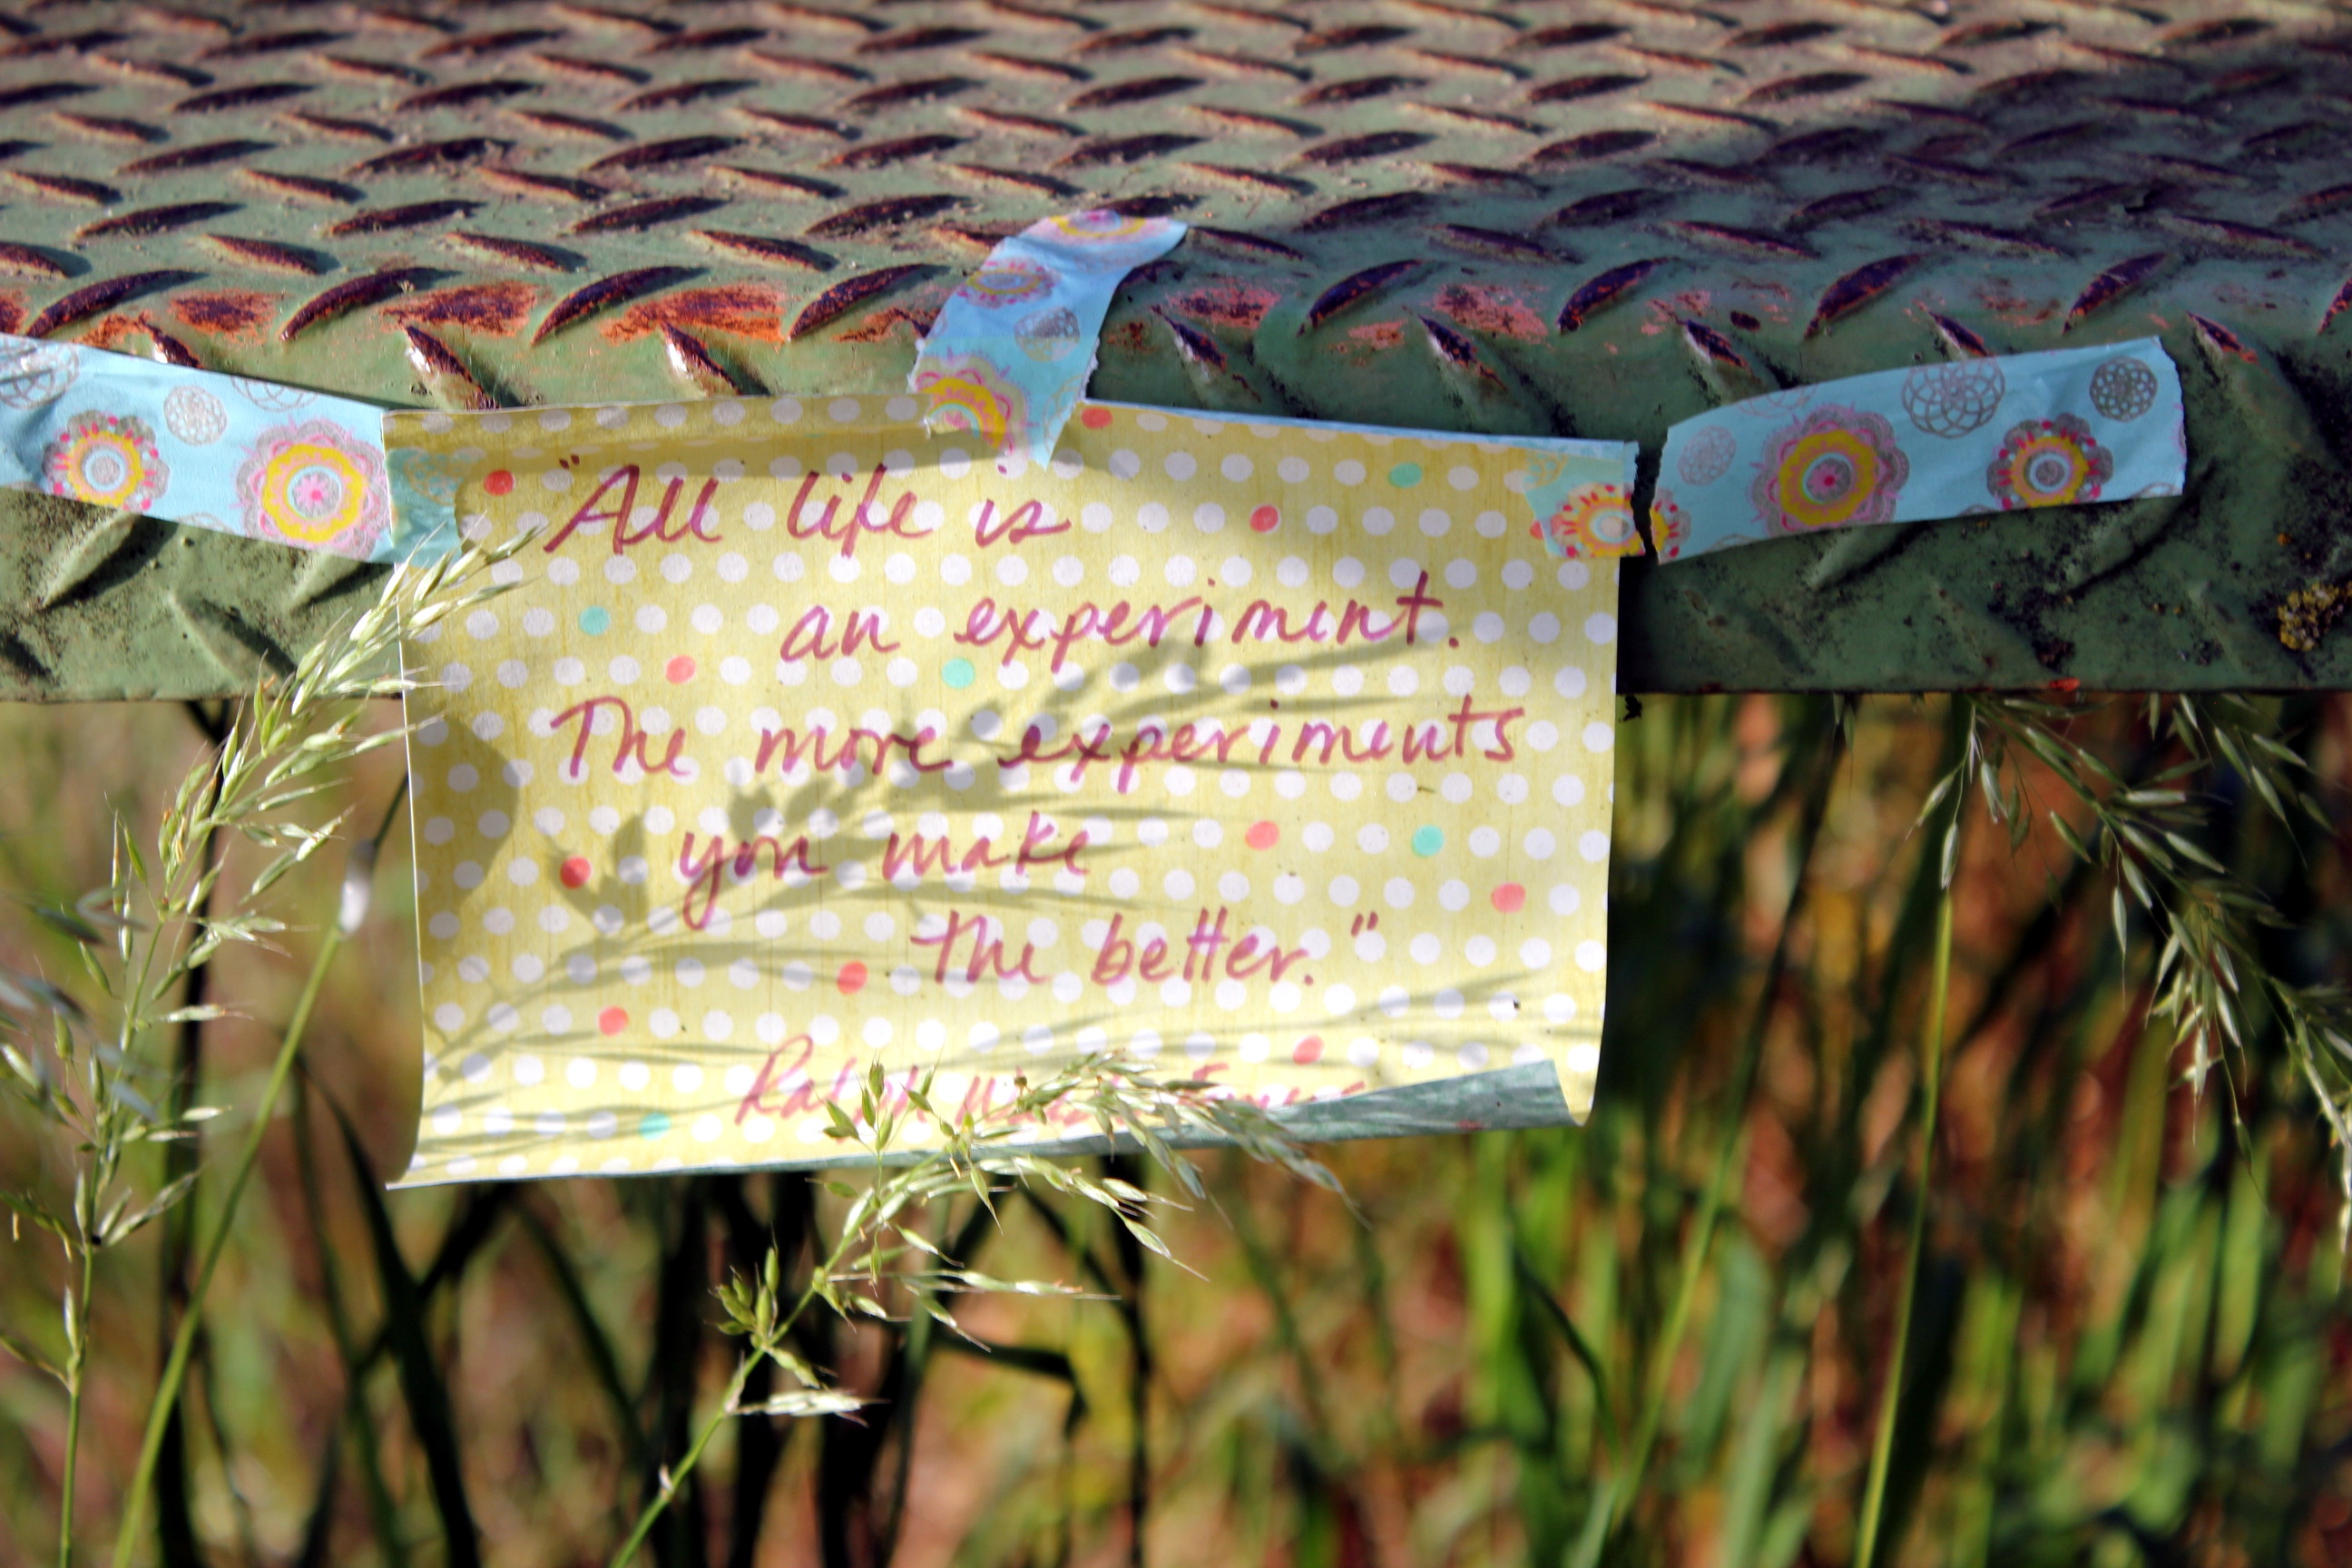 "All life is
an experiment.
The more experiments
you make
the better."
Ralph